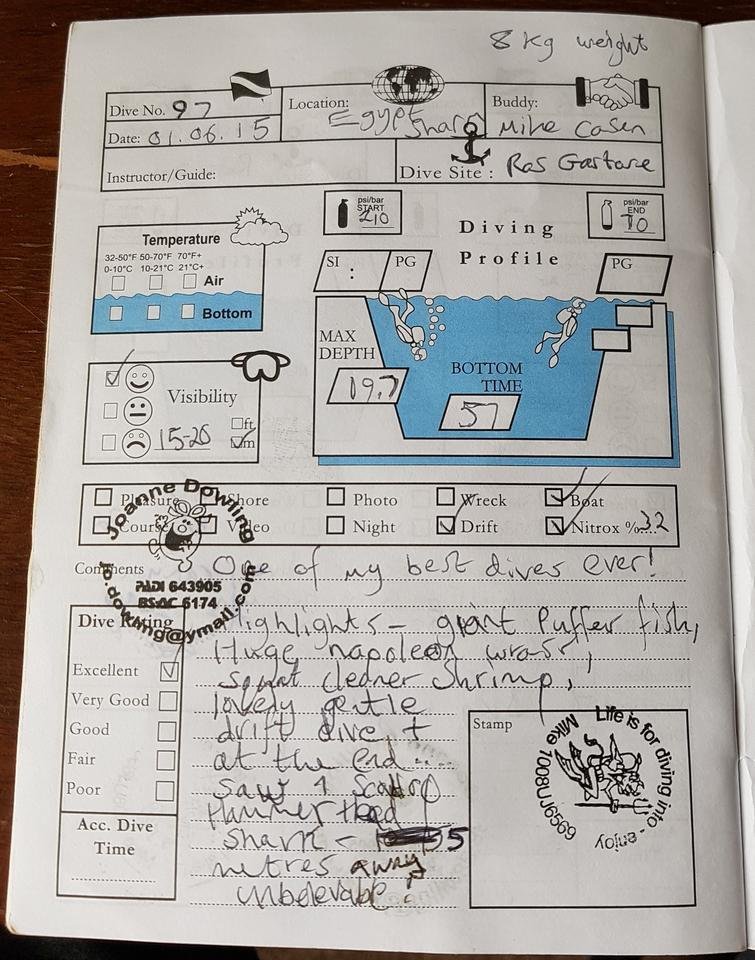 8 Kg weight
Dive No. 97
Location: Egypt
Sharm
Buddy: Mike Casen
Date: 01.06.15
Instructor/Guide:
Dive Site : Ras
psi/bar START 210
psi/bar END 70
Diving Profile
Temperature
32-50°F 50-70°F 70°F+
0-10°C 10-21°C 21°C+
Air
Bottom
SI : PG
PG
MAX DEPTH 19.7
BOTTOM TIME 57
Visibility
ft
15-20 m
Pleasure Shore Photo Wreck Boat
Course Video Night Drift Nitrox %32
Joanne Dowling
PADI 643905
BSAC 6174
jo.dowling@ymail.com
Comments One of my best dives ever!
Dive Rating
Highlights - giant Puffer fish,
Huge napoleon
Excellent
squat cleaner Shrimp,
Very Good
lovely gentle
Good
drift dive, +
Fair
at the end ....
Poor
saw 1
Hammerhead
shark - 5
metres away
Acc. Dive Time
Stamp
Life is for diving into - enjoy
Mike